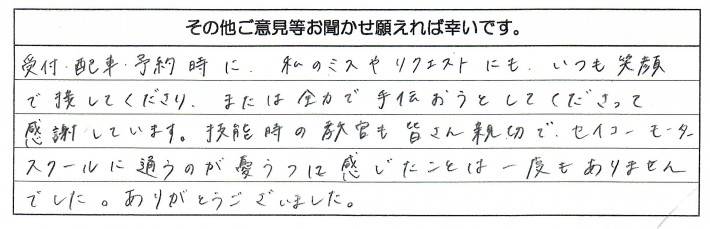 その他ご意見等お聞かせ願えれば幸いです。
受付・配車・予約時に、私のミスやリクエストにも、いつも笑顔
で接してくださり、または全力で手伝おうとしてくださって
感謝しています。技能時の教官も皆さん親切で、セイコーモーター
スクールに通うのが憂うつに感じたことは一度もありません
でした。ありがとうございました。